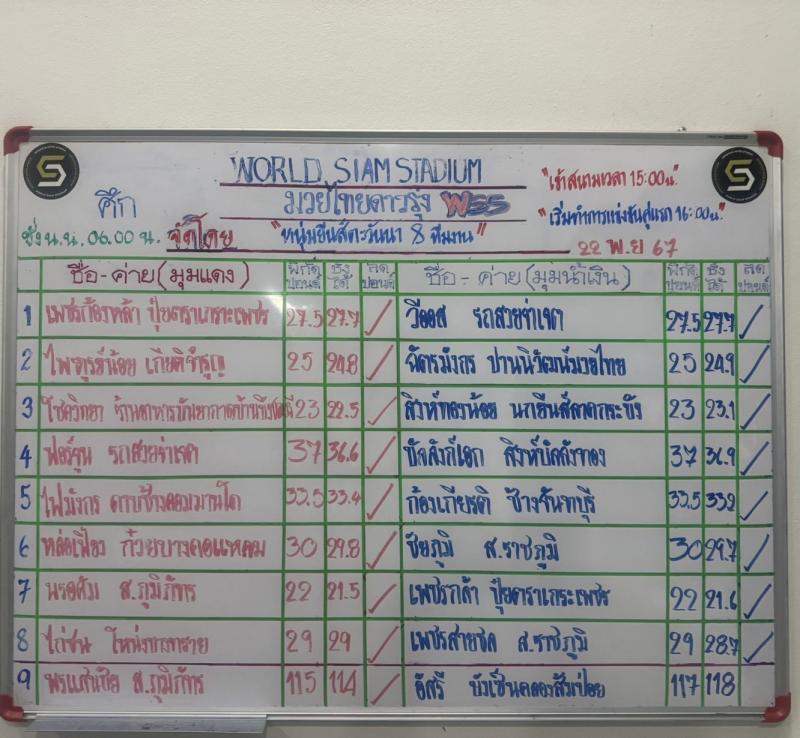 WORLD SIAM STADIUM
"เข้าสนามเวลา 15:00น"
ศึก มวยไทยดาวรุ่ง WSS
"เริ่มทำการแข่งขันคู่แรก 16:00น"
ชั่ง น.น. 06.00 น. จัดโดย "หนุ่มยีนส์ตะวันนา 8 ทีมงาน"
22 พ.ย 67
ชื่อ - ค่าย (มุมแดง) พิกัดปอนด์ ชั่งได้ ลดปอนด์ ชื่อ - ค่าย (มุมน้ำเงิน) พิกัดปอนด์ ชั่งได้ ลดปอนด์
1 เพชรก้องหล้า ปุ๋ยตราเกราะเพชร 27.5 27.7 ✓ วีออส รถสวยจ่าเจต 27.5 27.7 ✓
2 ไพฑูรย์น้อย เกียติจำรูญ 25 24.8 ✓ ฉัตรมังกร ปานนิวัฒน์มวยไทย 25 24.9 ✓
3 โชควิทยา ร้านอาหารบันยากาด 23 22.5 ✓ สิงห์ทองน้อย นกยีนส์ลาดกระบัง 23 23.1 ✓
4 ฟอร์จูน รถสวยจ่าเจต 37 36.6 ✓ บัลลังก์เอก สิงห์บัลลังทอง 37 36.9 ✓
5 ไฟมังกร ดาบช้างคอมมานโด 33.5 33.4 ✓ ก้องเกียรติ ช้างจันทบุรี 33.5 33.2 ✓
6 หล่อเฟี้ยว ก๋วยบางคอแหลม 30 29.8 ✓ ชัยภูมิ ส.ราชภูมิ 30 29.7 ✓
7 พรอคัม ส.ภูมิภัทร 22 21.5 ✓ เพชรกล้า ปุ๋ยตราเกราะเพชร 22 21.6 ✓
8 ไก่ชน ใหน่งบางทราย 29 29 ✓ เพชรสายชล ส.ราชภูมิ 29 28.7 ✓
9 พรแสนชัย ส.ภูมิภัทร 115 114 ✓ อัสรี บังเซ็นคลองส้มป่อย 117 118